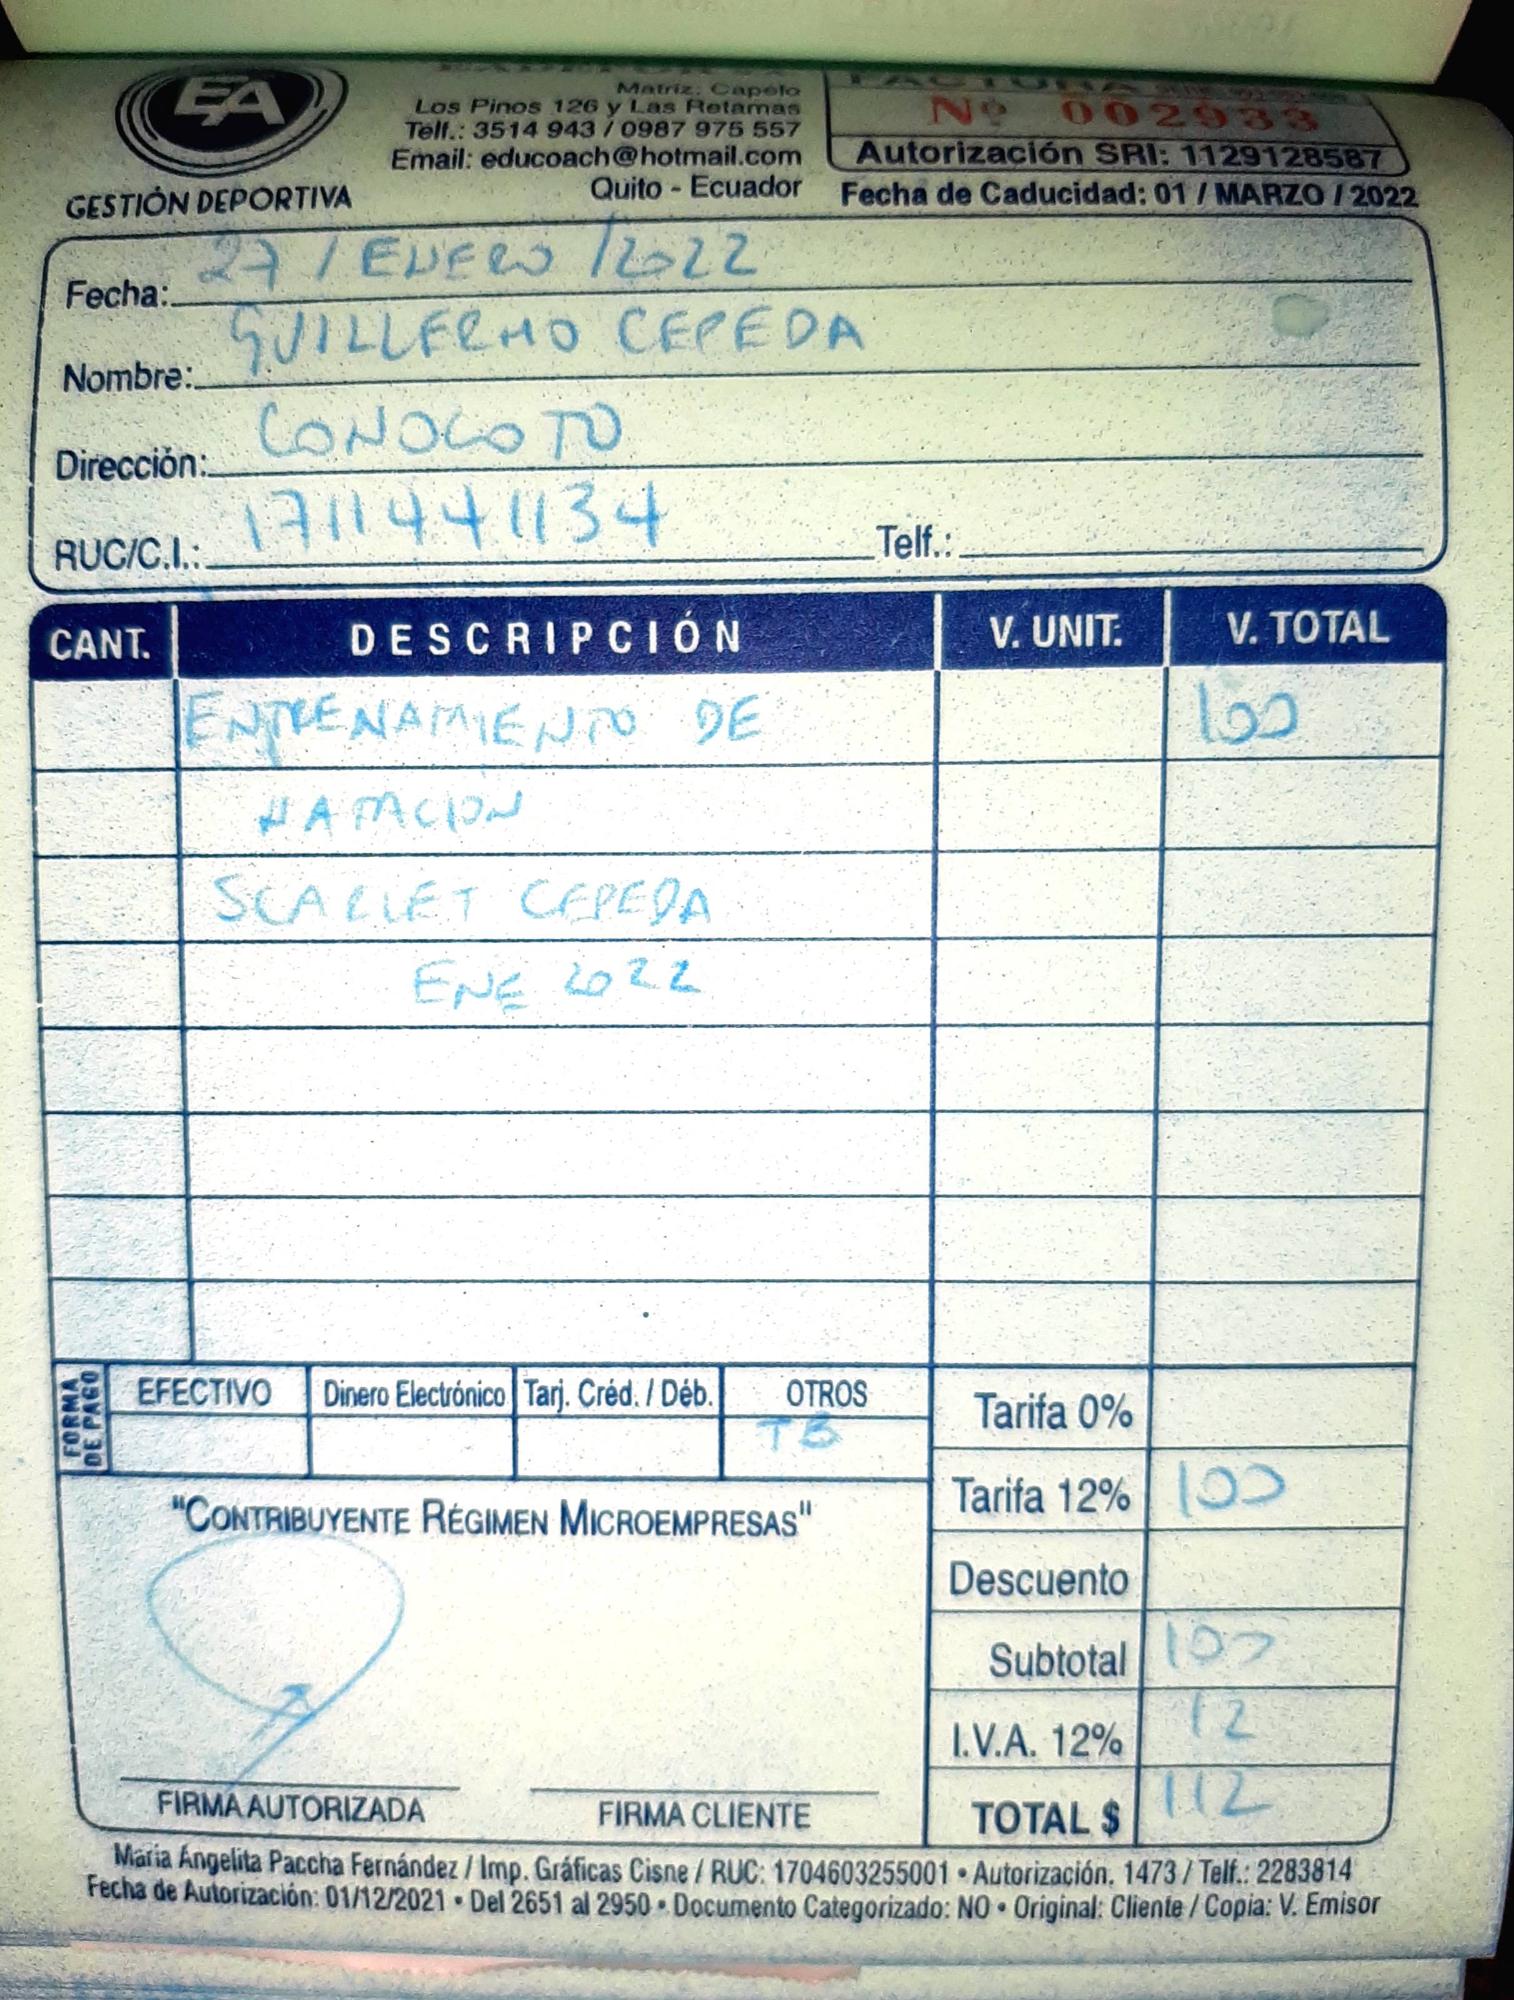 EA
Matriz: Capelo
Los Pinos 126 y Las Retamas
Telf.: 3514 943 / 0987 975 557
Email: educoach@hotmail.com
Quito - Ecuador
GESTIÓN DEPORTIVA
FACTURA
Nº 002933
Autorización SRI: 1129128587
Fecha de Caducidad: 01 / MARZO / 2022
Fecha: 27 / ENERO / 2022
Nombre: GUILLERMO CEPEDA
Dirección: CONOCOTO
RUC/C.I.: 1711441134 Telf.:
CANT. DESCRIPCIÓN V. UNIT. V. TOTAL
ENTRENAMIENTO DE 100
NATACION
SCARLET CEPEDA
ENE 2022
FORMA DE PAGO
EFECTIVO Dinero Electrónico Tarj. Créd. / Déb. OTROS
TB
Tarifa 0%
Tarifa 12% 100
Descuento
Subtotal 100
I.V.A. 12% 12
TOTAL $ 112
"CONTRIBUYENTE RÉGIMEN MICROEMPRESAS"
FIRMA AUTORIZADA FIRMA CLIENTE
María Angelita Paccha Fernández / Imp. Gráficas Cisne / RUC: 1704603255001 • Autorización. 1473 / Telf.: 2283814
Fecha de Autorización: 01/12/2021 • Del 2651 al 2950 • Documento Categorizado: NO • Original: Cliente / Copia: V. Emisor